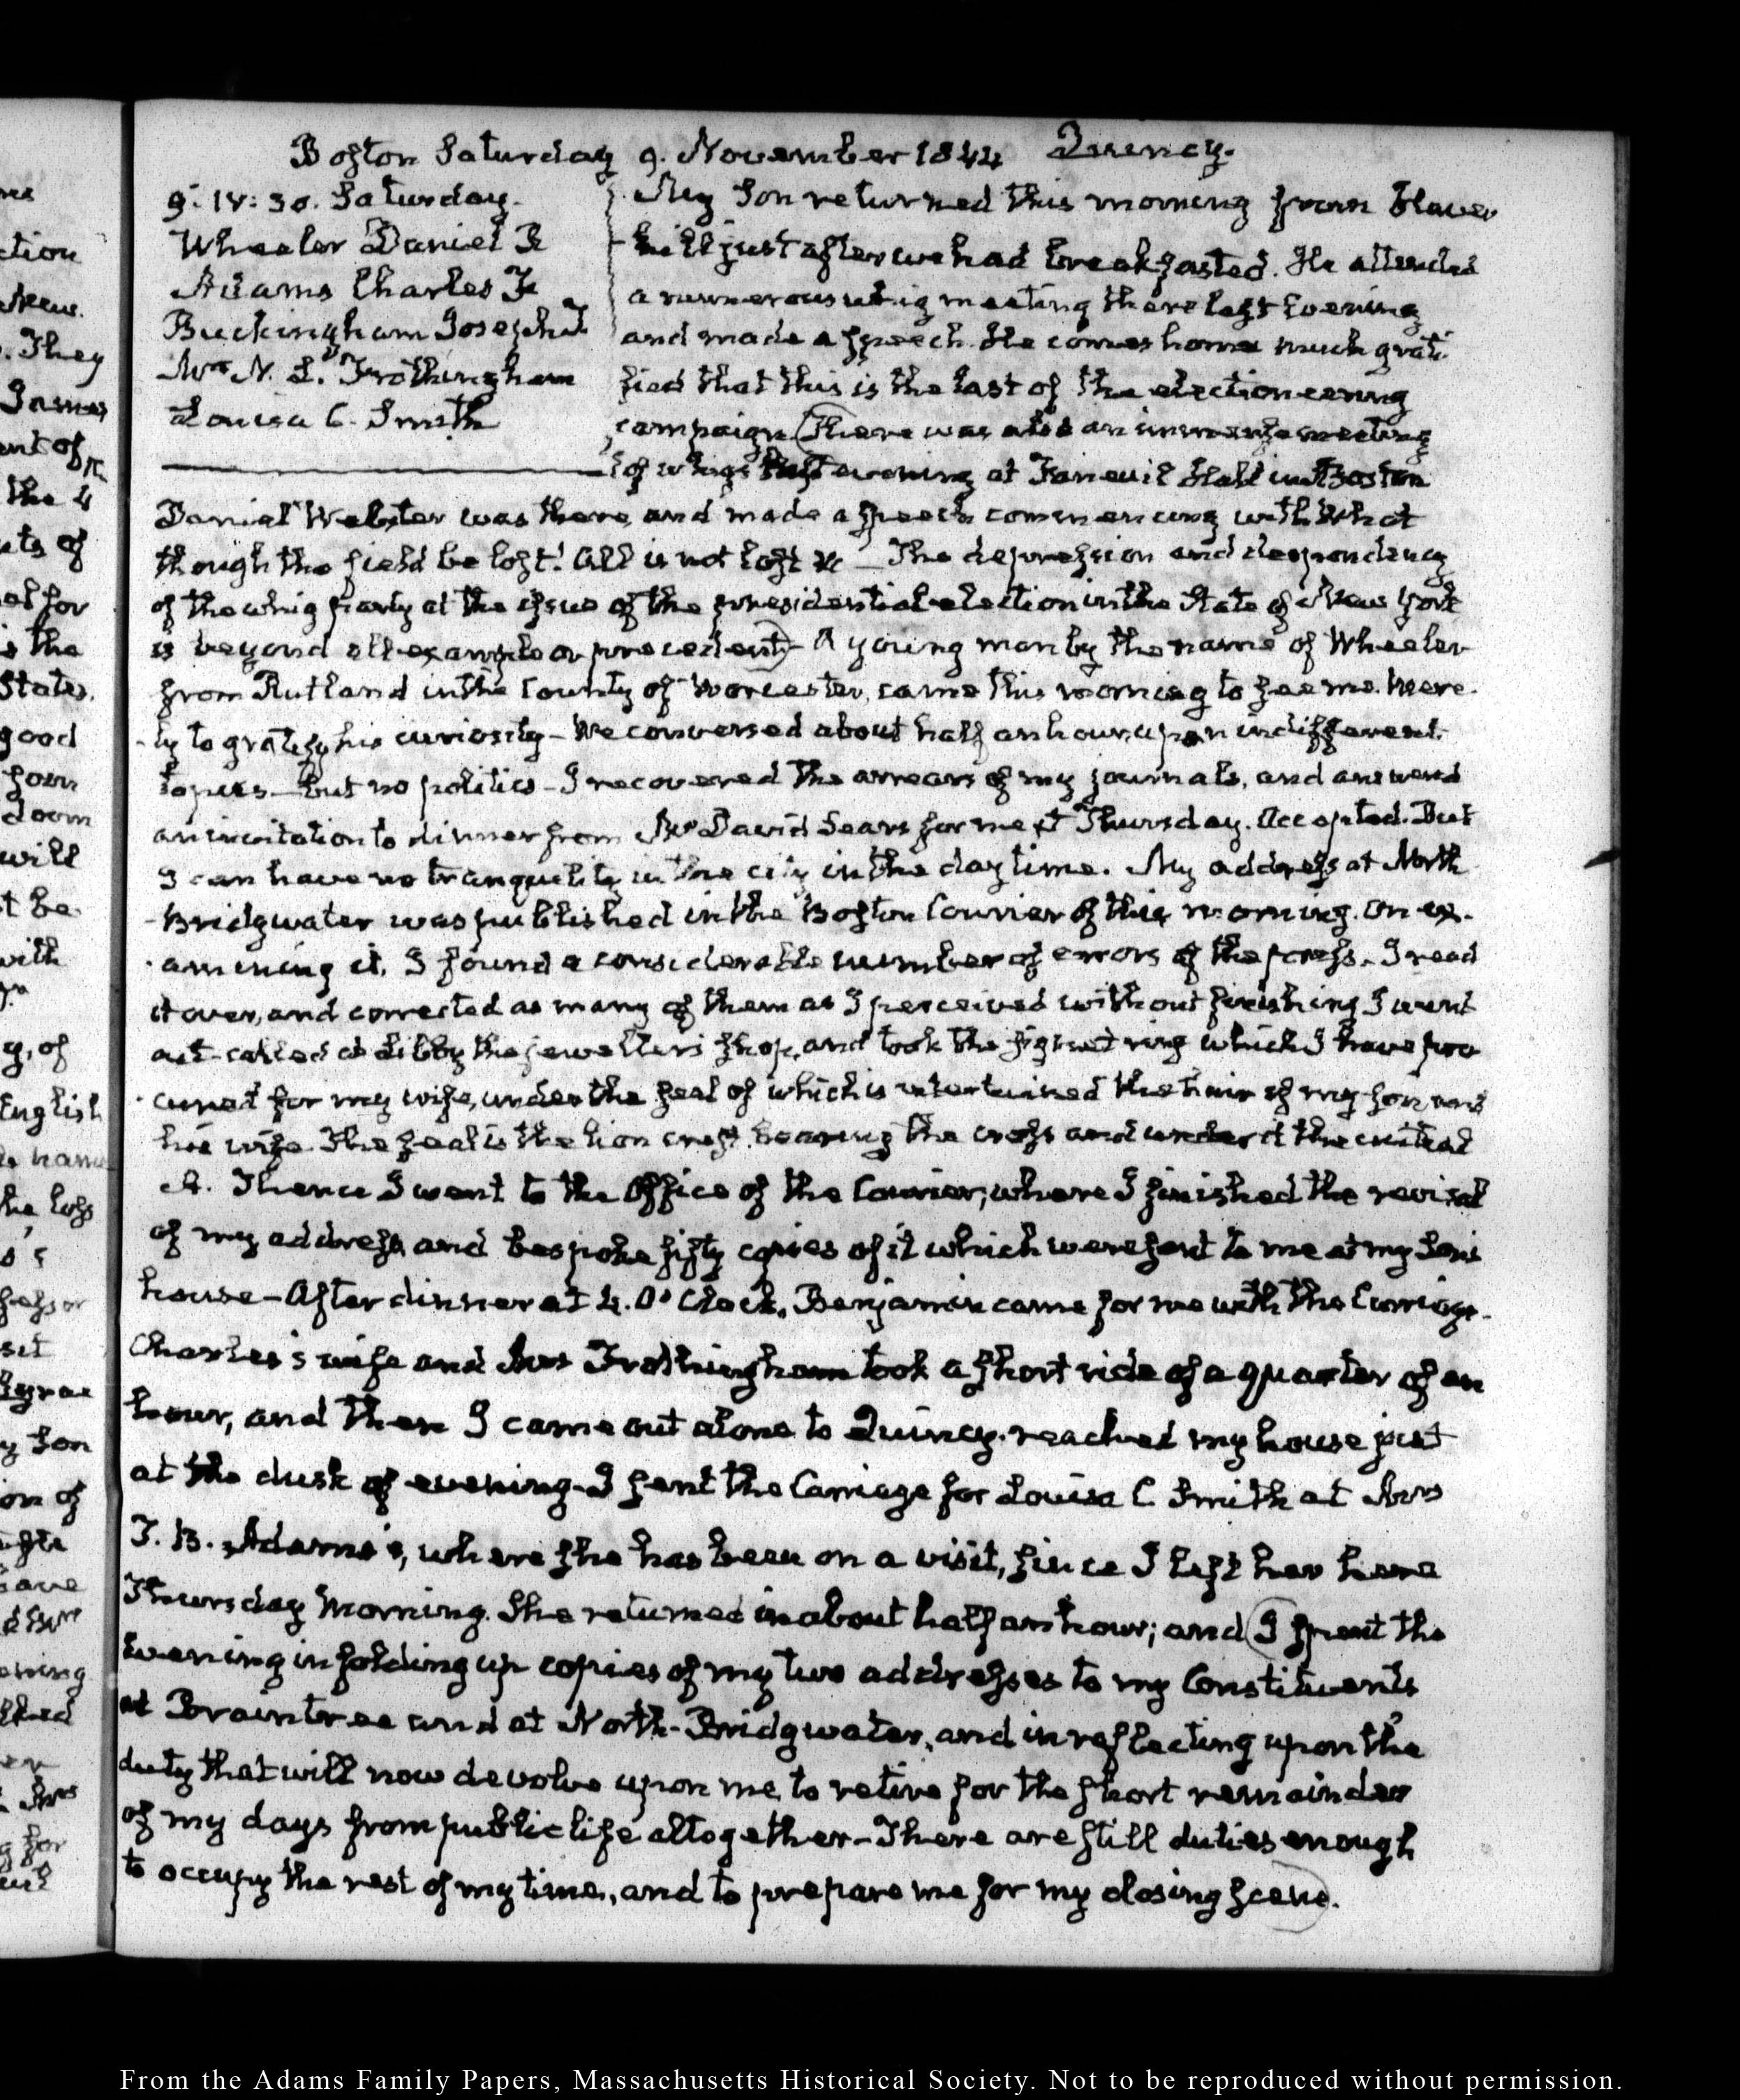 Boston Saturday 9. November 1844 Quincy.
9. IV: 30. Saturday.
Wheeler Daniel
Adams Charles F
Buckingham Joseph T
Mrs N. L. Frothingham
Louisa C. Smith
My Son returned this morning from Haver
hill just after we had breakfasted. He attended
a numerous whig meeting there last Evening
and made a speech. He comes home much grati-
fied that this is the last of the electioneering
campaign. There was also an immense meeting
of whigs last evening at Faneuil Hall in Boston
Daniel Webster was there, and made a speech commencing with What
though the field be lost! All is not lost &c — The depression and despondency
of the whig party at the issue of the presidential election in the State of New York
is beyond all example or precedent — A young man by the name of Wheeler
from Rutland in the County of Worcester, came this morning to see me. mere-
ly to gratify his curiosity — We conversed about half an hour, upon indifferent
topics — but no politics — I recovered the arrears of my journals, and answered
an invitation to dinner from Mr David Sears for next Thursday. Accepted. But
I can have no tranquility in the city in the day time. My address at North
Bridgwater was published in the Boston Courier of this morning. On ex-
amining it, I found a considerable number of errors of the press. I read
it over, and corrected as many of them as I perceived without finishing. I went
out called at Libby the jeweller's shop, and took the signet ring which I have pro
cured for my wife, under the seal of which is intertwined the hair of my son and
his wife. The seal is the lion crest, bearing the cross and under it the initial
A. Thence I went to the Office of the Courier, where I finished the revisal
of my address, and bespoke fifty copies of it which were sent to me at my Son's
house — After dinner at 4. O'Clock, Benjamin came for me with the Carriage.
Charles's wife and Mrs Frothingham took a short ride of a quarter of an
hour, and then I came out alone to Quincy. reached my house just
at the dusk of evening — I sent the Carriage for Louisa C. Smith at Mrs
T. B. Adams's, where she has been on a visit, since I left her here
Thursday Morning. She returned in about half an hour; and I spent the
Evening in folding up copies of my two addresses to my Constituents
at Braintree and at North-Bridgwater, and in reflecting upon the
duty that will now devolve upon me, to retire for the short remainder
of my days from public life altogether — There are still duties enough
to occupy the rest of my time, and to prepare me for my closing scene.
From the Adams Family Papers, Massachusetts Historical Society. Not to be reproduced without permission.